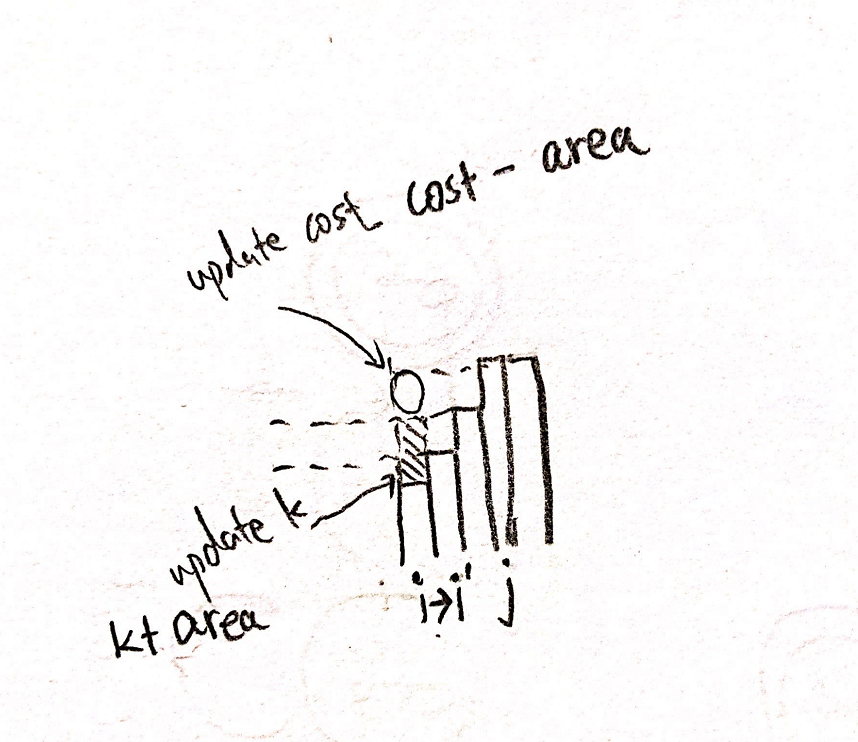 update cost cost - area
update k
k+ area
i→i' j